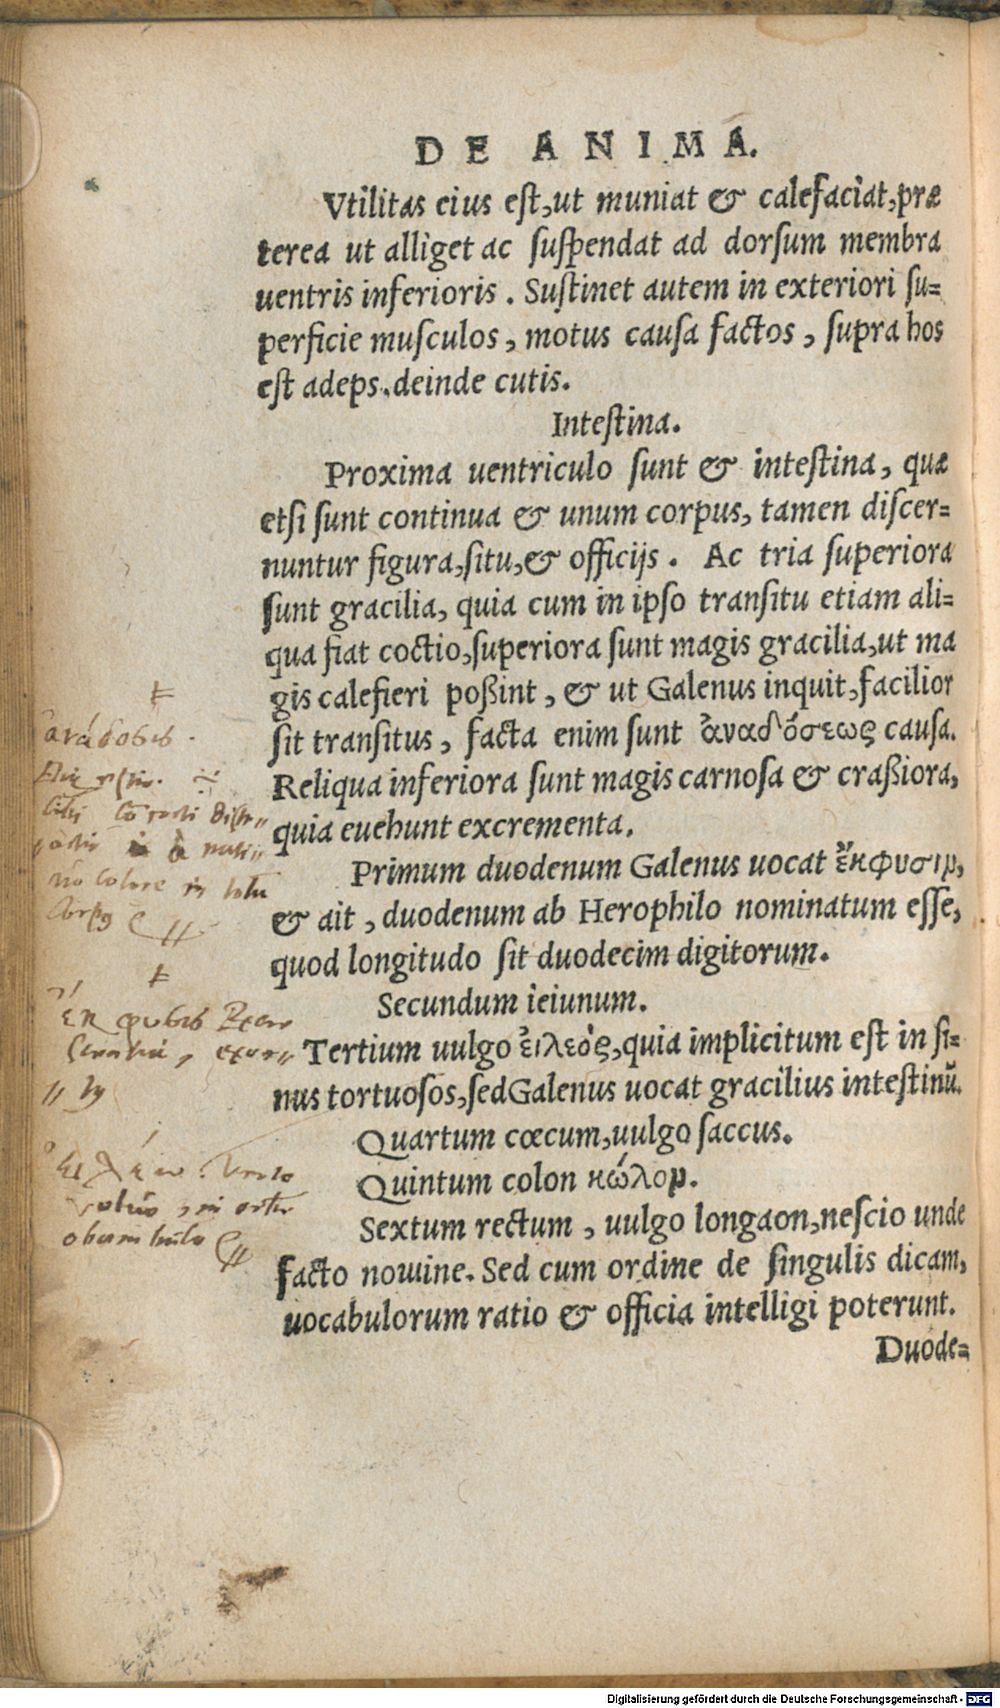 DE ANIMA.
Vtilitas eius est, ut muniat & calefaciat, præ
terea ut alliget ac suspendat ad dorsum membra
uentris inferioris. Sustinet autem in exteriori su=
perficie musculos, motus causa factos, supra hos
est adeps, deinde cutis.
Intestina.
Proxima uentriculo sunt & intestina, quæ
etsi sunt continua & unum corpus, tamen discer=
nuntur figura, situ, & officijs. Ac tria superiora
sunt gracilia, quia cum in ipso transitu etiam ali=
qua fiat coctio, superiora sunt magis gracilia, ut ma
gis calefieri poßint, & ut Galenus inquit, facilior
sit transitus, facta enim sunt ἀναδόσεως causa.
Reliqua inferiora sunt magis carnosa & craßiora,
quia euehunt excrementa.
Primum duodenum Galenus uocat ἔκφυσιν,
& ait, duodenum ab Herophilo nominatum esse,
quod longitudo sit duodecim digitorum.
Secundum ieiunum.
Tertium uulgo εἰλεὸς, quia implicitum est in si=
nus tortuosos, sed Galenus uocat gracilius intestinũ.
Quartum cœcum, uulgo saccus.
Quintum colon κώλον.
Sextum rectum, uulgo longaon, nescio unde
facto nomine. Sed cum ordine de singulis dicam,
uocabulorum ratio & officia intelligi poterunt.
Duode=
ἀνάδοσις.
colore in
ἔκφυσις